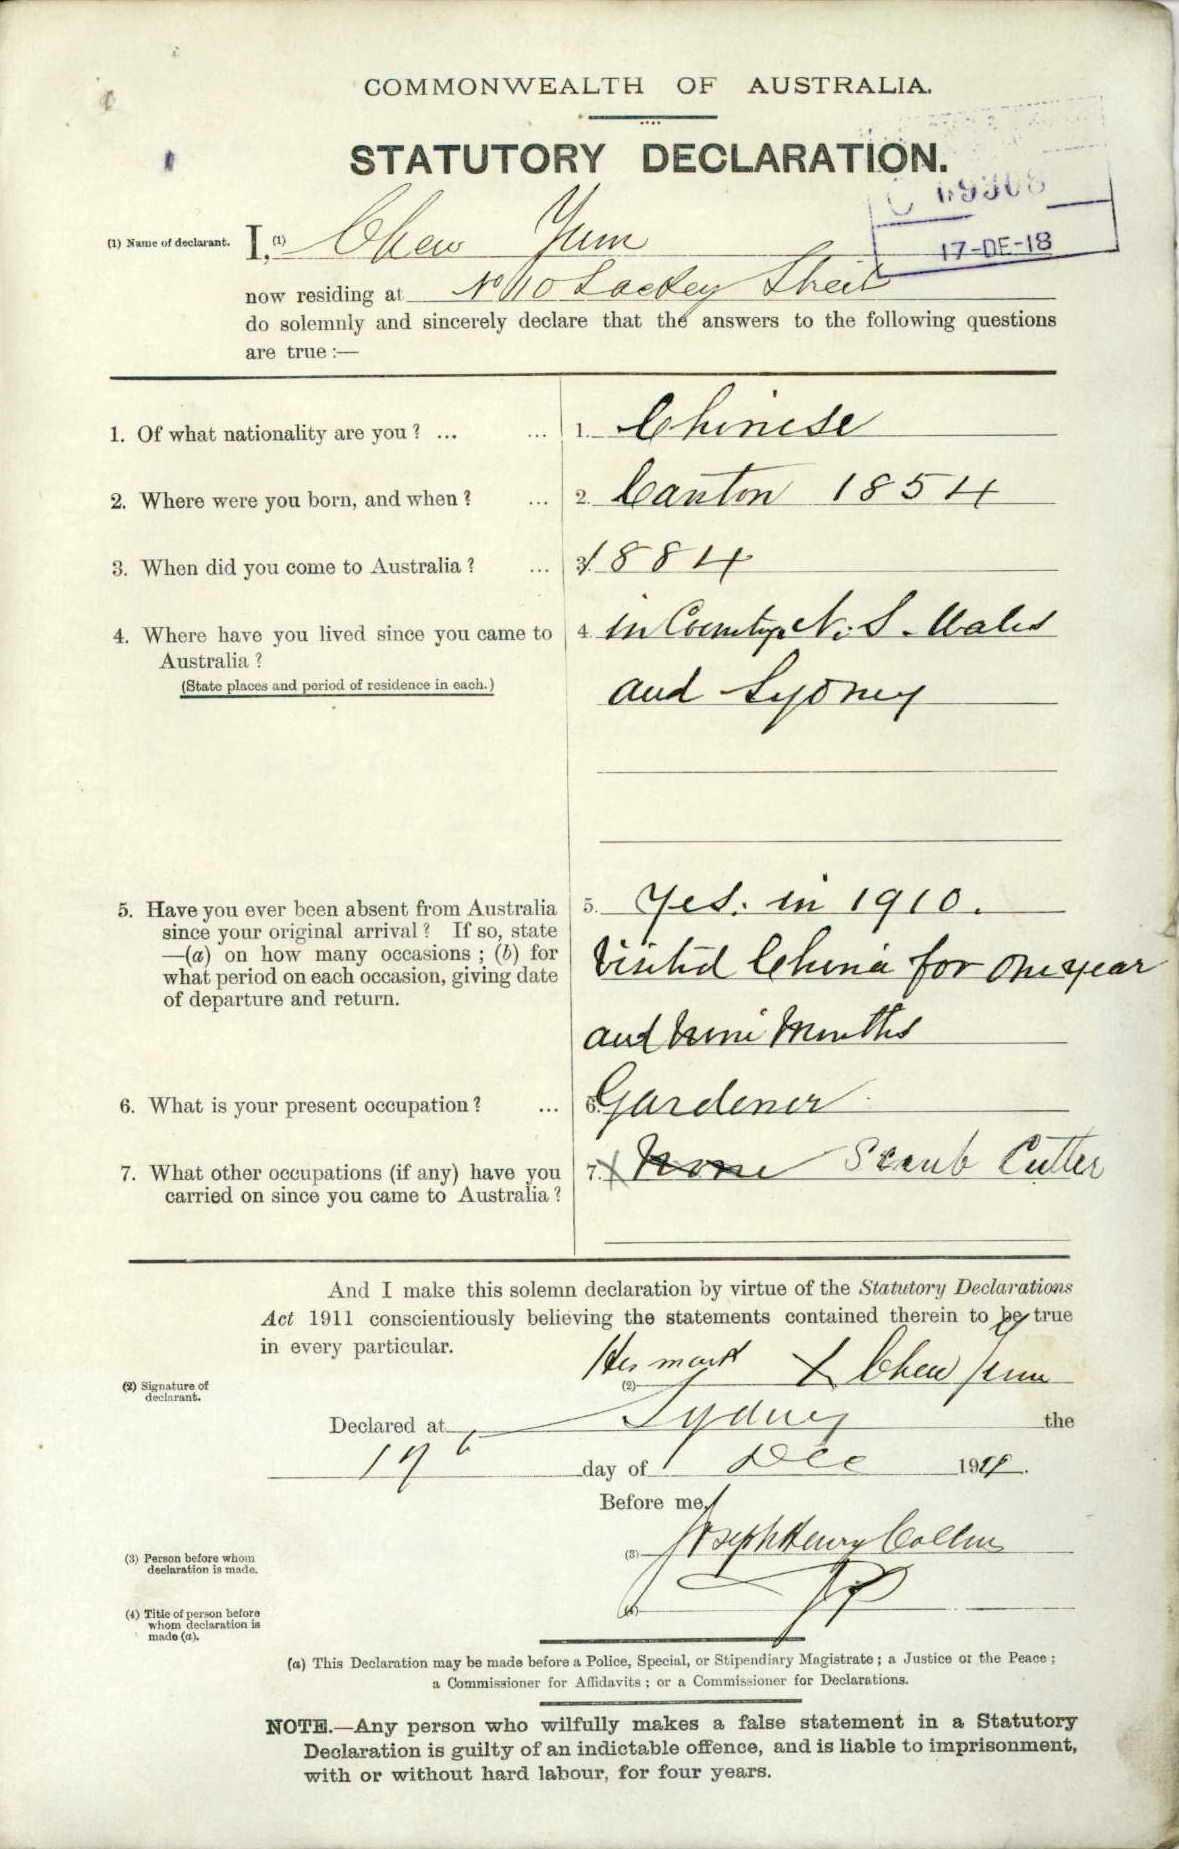 COMMONWEALTH OF AUSTRALIA.
STATUTORY DECLARATION.
C 49308
17-DE-18
(1) Name of declarant. I, (1) Chew Yum
now residing at No 10 Lackey Street
do solemnly and sincerely declare that the answers to the following questions
are true:—
1. Of what nationality are you? ... ... 1. Chinese
2. Where were you born, and when? ... 2. Canton 1854
3. When did you come to Australia? ... 3. 1884
4. Where have you lived since you came to 4. in Country N. S. Wales
Australia?
(State places and period of residence in each.)
and Sydney
5. Have you ever been absent from Australia 5. Yes. in 1910.
since your original arrival? If so, state
—(a) on how many occasions; (b) for Visitid China for one year
what period on each occasion, giving date
of departure and return.
and nine Months
6. What is your present occupation? ... 6. Gardener
7. What other occupations (if any) have you 7. X None Scrub Cutter
carried on since you came to Australia?
And I make this solemn declaration by virtue of the Statutory Declarations
Act 1911 conscientiously believing the statements contained therein to be true
in every particular.
His mark X Chew Yum
(2) Signature of (2)
declarant.
Declared at Sydney the
17th day of Dec 191
Before me,
(3) Person before whom (3) Joseph Henry Collins
declaration is made.
JP
(4) Title of person before (4)
whom declaration is
made (a).
(a) This Declaration may be made before a Police, Special, or Stipendiary Magistrate; a Justice of the Peace;
a Commissioner for Affidavits; or a Commissioner for Declarations.
NOTE.—Any person who wilfully makes a false statement in a Statutory
Declaration is guilty of an indictable offence, and is liable to imprisonment,
with or without hard labour, for four years.